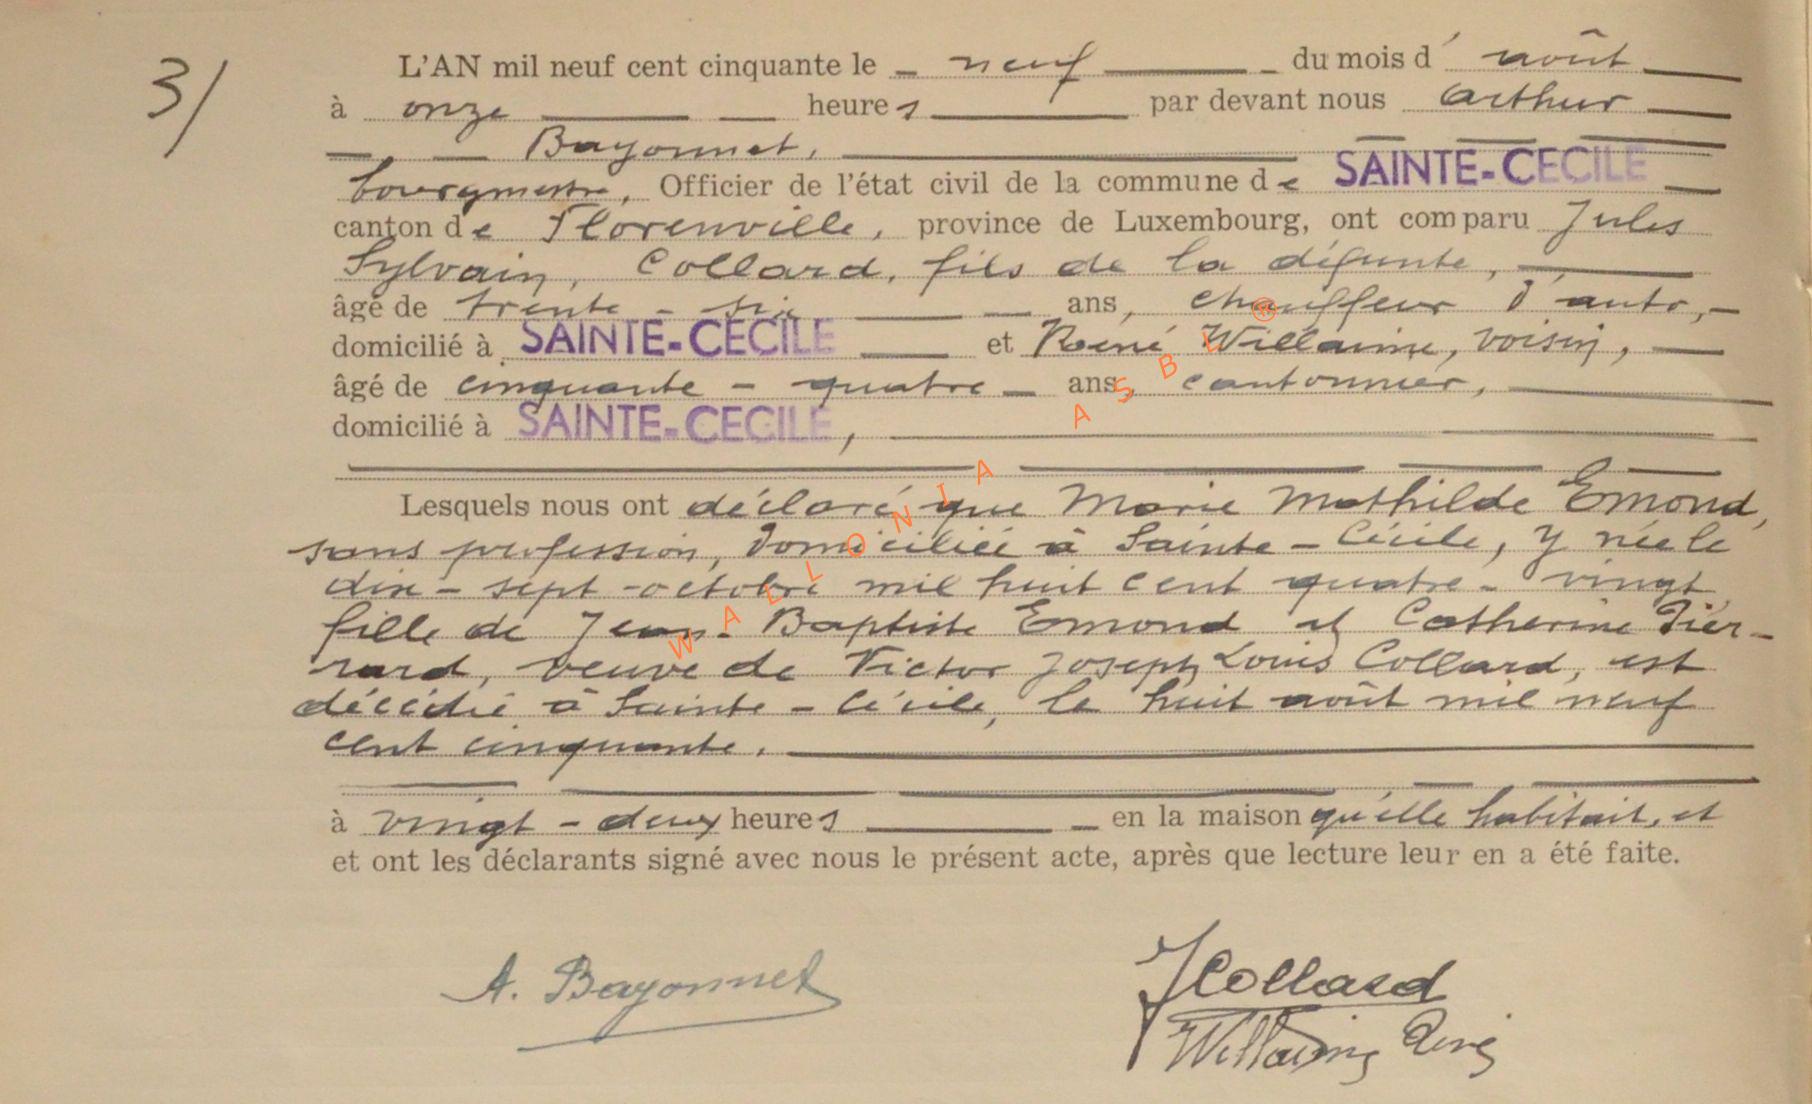 3/
L'AN mil neuf cent cinquante le neuf du mois d' août
à onze heures par devant nous Arthur
Bayonnet,
bourgmestre, Officier de l'état civil de la commune de SAINTE-CECILE
canton de Florenville, province de Luxembourg, ont comparu Jules
Sylvain, Collard, fils de la défunte,
âgé de trente-six ans, chauffeur d'auto,
domicilié à SAINTE-CECILE et René Willaime, voisin,
âgé de cinquante-quatre ans, cantonnier,
domicilié à SAINTE-CECILE,
Lesquels nous ont déclaré que Marie Mathilde Emond,
sans profession, domiciliée à Sainte-Cécile, y née le
dix-sept octobre mil huit cent quatre-vingt
fille de Jean-Baptiste Emond et Catherine Pier-
rard, veuve de Victor Joseph Louis Collard, est
décédée à Sainte-Cécile, le huit août mil neuf
cent cinquante.
à vingt-deux heures en la maison qu'elle habitait, et
et ont les déclarants signé avec nous le présent acte, après que lecture leur en a été faite.
A. Bayonnet
JCollard
Willaime René
WALLONIA ASBL ®